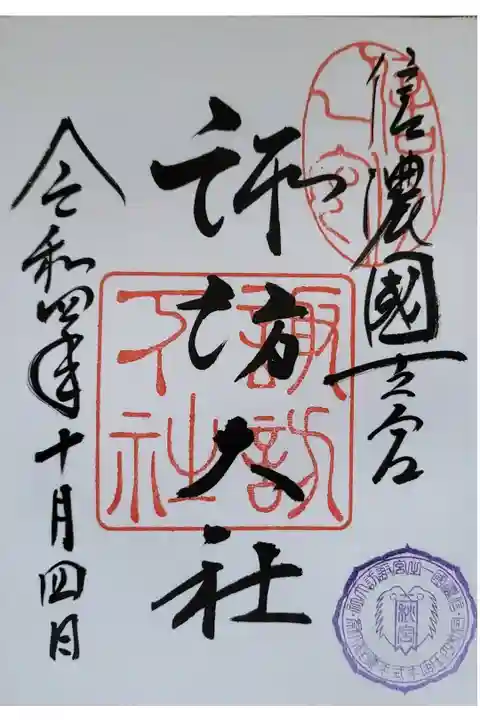 信濃國一之宮
諏訪大社
令和四年十月四日
諏訪
下社
秋宮